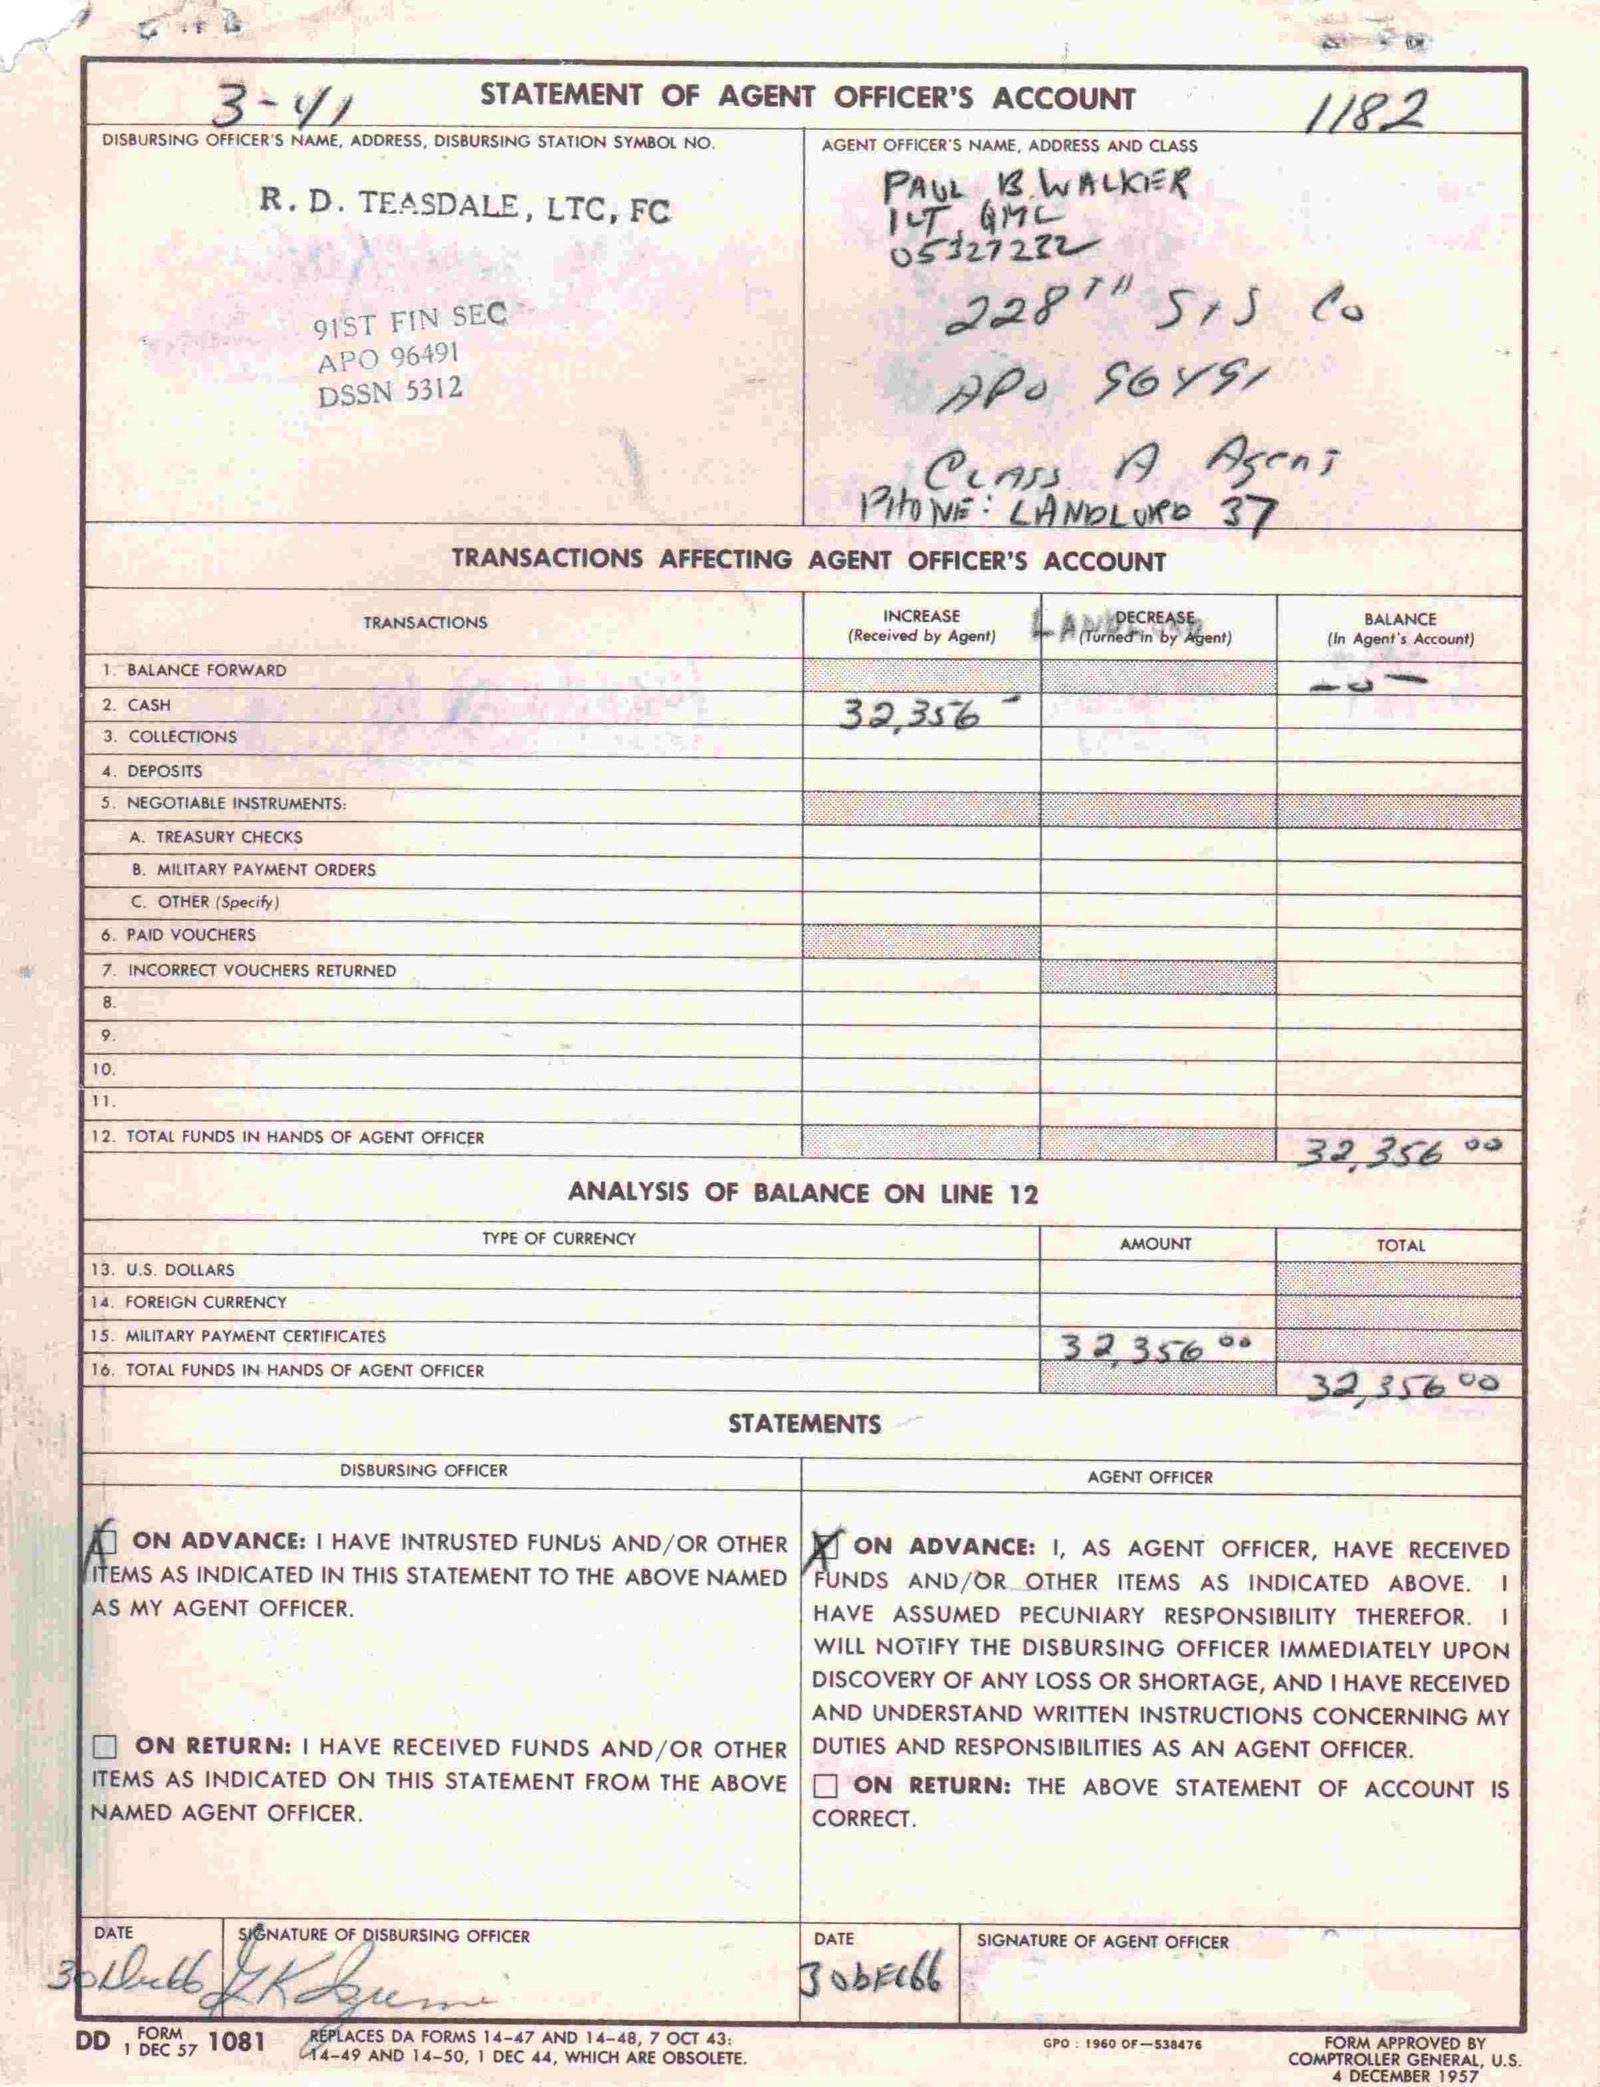 3-41
STATEMENT OF AGENT OFFICER'S ACCOUNT
1182
DISBURSING OFFICER'S NAME, ADDRESS, DISBURSING STATION SYMBOL NO.
R. D. TEASDALE, LTC, FC
91ST FIN SEC
APO 96491
DSSN 5312
AGENT OFFICER'S NAME, ADDRESS AND CLASS
PAUL B. WALKER
1LT QMC
05327232
228TH S+S Co
APO 96491
CLASS A Agent
PHONE: LANDLORD 37
TRANSACTIONS AFFECTING AGENT OFFICER'S ACCOUNT
TRANSACTIONS INCREASE DECREASE BALANCE
(Received by Agent) (Turned in by Agent) (In Agent's Account)
1. BALANCE FORWARD -0-
2. CASH 32,356 -
3. COLLECTIONS
4. DEPOSITS
5. NEGOTIABLE INSTRUMENTS:
A. TREASURY CHECKS
B. MILITARY PAYMENT ORDERS
C. OTHER (Specify)
6. PAID VOUCHERS
7. INCORRECT VOUCHERS RETURNED
8.
9.
10.
11.
12. TOTAL FUNDS IN HANDS OF AGENT OFFICER 32,356 00
ANALYSIS OF BALANCE ON LINE 12
TYPE OF CURRENCY AMOUNT TOTAL
13. U.S. DOLLARS
14. FOREIGN CURRENCY
15. MILITARY PAYMENT CERTIFICATES 32,356 00
16. TOTAL FUNDS IN HANDS OF AGENT OFFICER 32,356 00
STATEMENTS
DISBURSING OFFICER
X ON ADVANCE: I HAVE INTRUSTED FUNDS AND/OR OTHER
ITEMS AS INDICATED IN THIS STATEMENT TO THE ABOVE NAMED
AS MY AGENT OFFICER.
ON RETURN: I HAVE RECEIVED FUNDS AND/OR OTHER
ITEMS AS INDICATED ON THIS STATEMENT FROM THE ABOVE
NAMED AGENT OFFICER.
AGENT OFFICER
X ON ADVANCE: I, AS AGENT OFFICER, HAVE RECEIVED
FUNDS AND/OR OTHER ITEMS AS INDICATED ABOVE. I
HAVE ASSUMED PECUNIARY RESPONSIBILITY THEREFOR. I
WILL NOTIFY THE DISBURSING OFFICER IMMEDIATELY UPON
DISCOVERY OF ANY LOSS OR SHORTAGE, AND I HAVE RECEIVED
AND UNDERSTAND WRITTEN INSTRUCTIONS CONCERNING MY
DUTIES AND RESPONSIBILITIES AS AN AGENT OFFICER.
ON RETURN: THE ABOVE STATEMENT OF ACCOUNT IS
CORRECT.
DATE SIGNATURE OF DISBURSING OFFICER
30 Dec 66
DATE SIGNATURE OF AGENT OFFICER
30 DEC 66
DD FORM 1 DEC 57 1081
REPLACES DA FORMS 14-47 AND 14-48, 7 OCT 43:
14-49 AND 14-50, 1 DEC 44, WHICH ARE OBSOLETE.
GPO : 1960 OF—538476
FORM APPROVED BY
COMPTROLLER GENERAL, U.S.
4 DECEMBER 1957